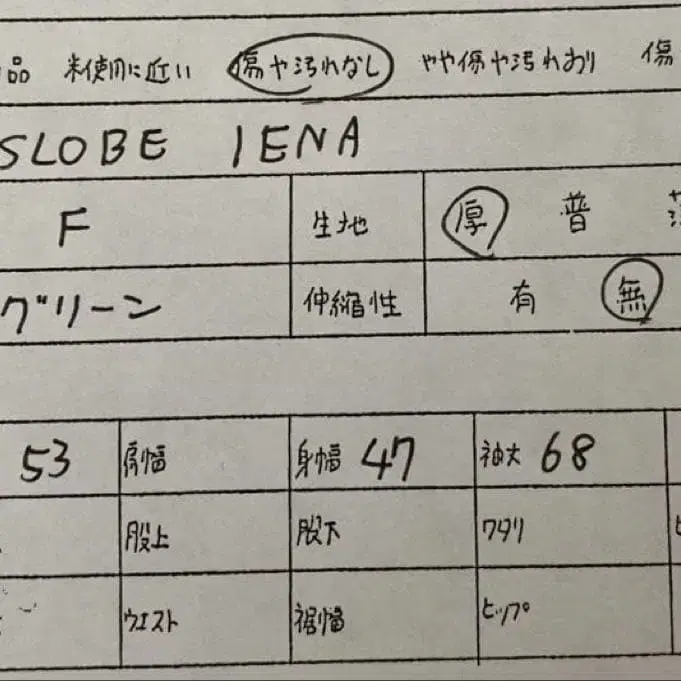 品 未使用に近い 傷や汚れなし やや傷や汚れあり 傷
SLOBE IENA
F 生地 厚 普
グリーン 伸縮性 有 無
53 肩幅 身幅 47 袖丈 68
股上 股下 ワタリ
ウエスト 裾幅 ヒップ